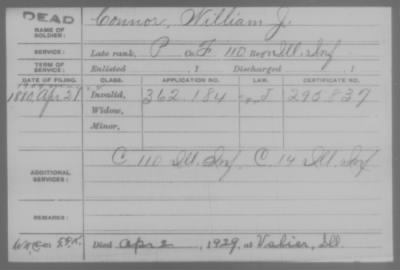 DEAD
NAME OF SOLDIER: Connor, William J.
SERVICE: Late rank, P Co. F, 110 Reg't Ill. Inf.
TERM OF SERVICE: Enlisted , 1 Discharged , 1
DATE OF FILING. CLASS. APPLICATION NO. LAW. CERTIFICATE NO.
1880 Apr 21 Invalid, 362.184 J 295.837
Widow,
Minor,
C. 110 Ill. Inf, C. 14 Ill. Inf
ADDITIONAL SERVICES:
REMARKS:
Died Apr 2, 1929, at Valier, Ill.